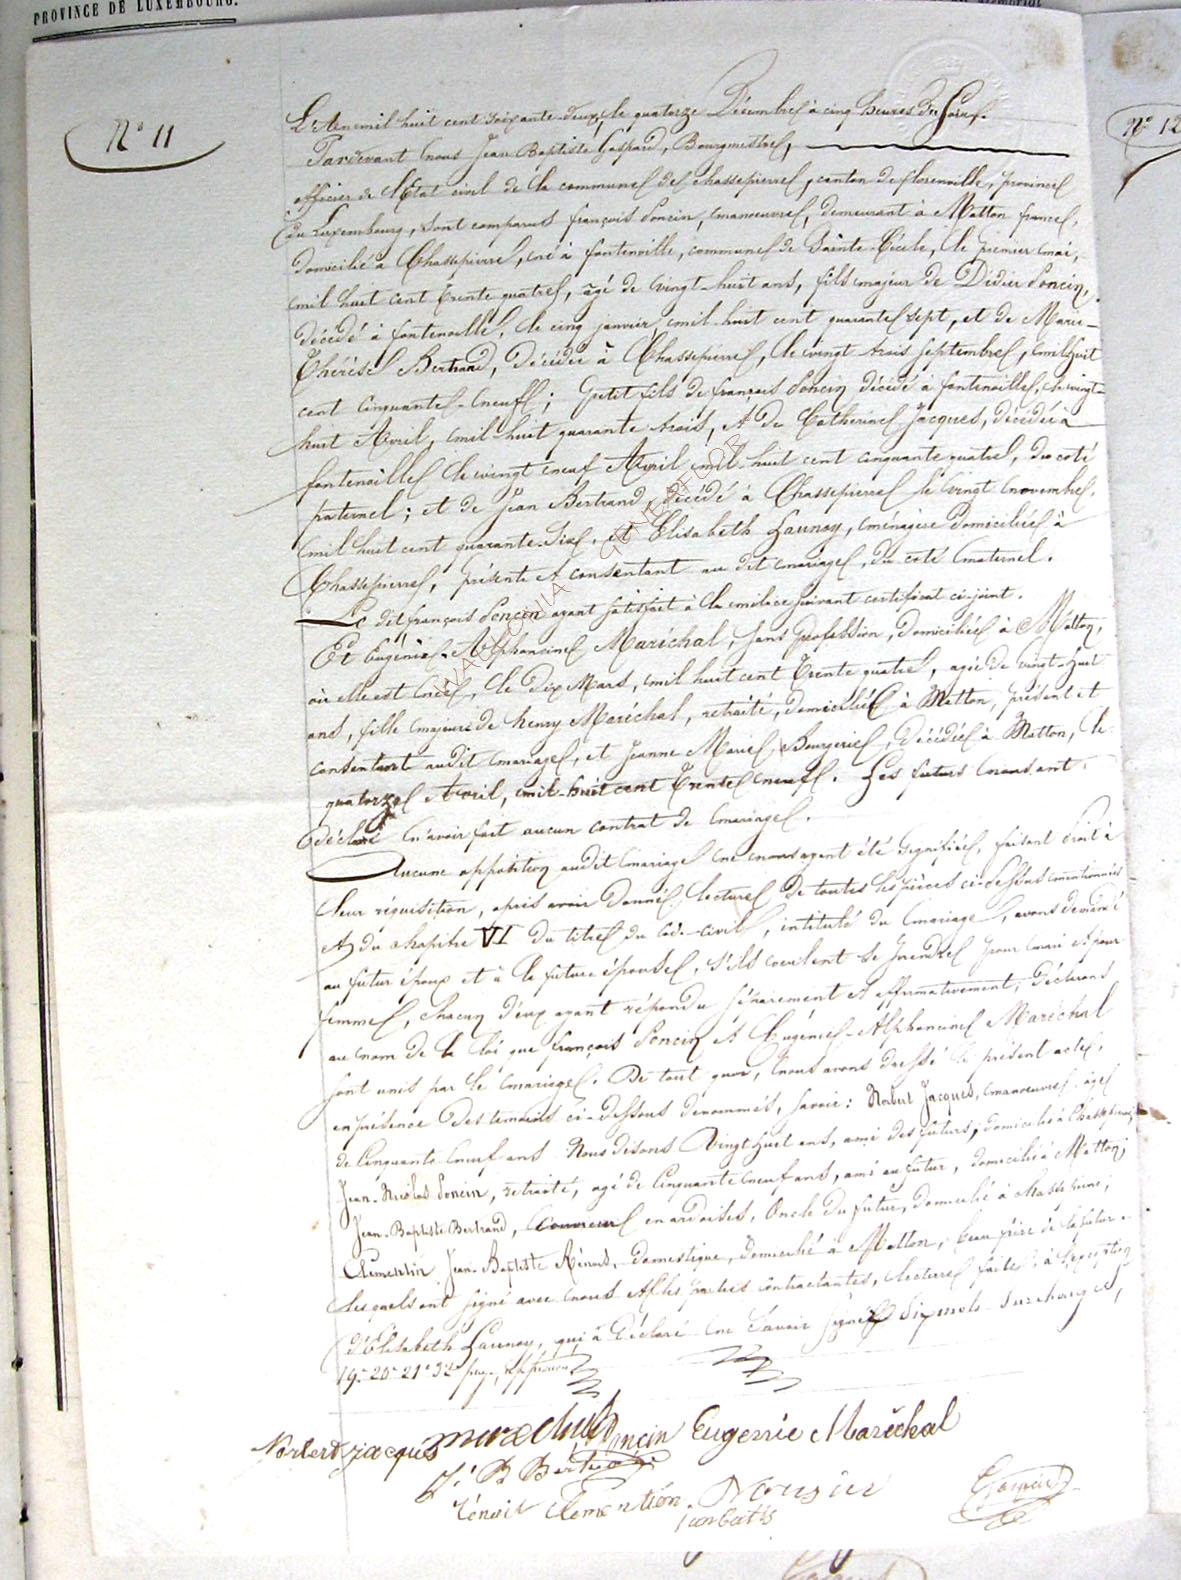 PROVINCE DE LUXEMBOURG.
N° 11
N° 12
L'An mil huit cent soixante-deux, le quatorze Décembre à cinq heures du soir.
Pardevant nous Jean Baptiste Gaspard, Bourgmestre,
officier de l'Etat civil de la commune de Chassepierre, canton de florenville, province
du Luxembourg, sont comparus françois Poncin, manoeuvre, demeurant à Matton france,
domicilié à Chassepierre, né à fontenoille, commune de Sainte-Cécile, le premier mai,
mil huit cent trente quatre, âgé de vingt-huit ans, fils majeur de Didier Poncin,
décédé à fontenoille, le cinq janvier, mil huit cent quarante sept, et de Marie-
Thérèse Bertrand, décédée à Chassepierre, le vingt trois septembre, mil huit
cent cinquante-neuf; petit fils de françois Poncin décédé à fontenoille, le vingt-
huit Avril, mil huit quarante trois, et de Catherine Jacques, décédée à
fontenoille le vingt neuf Avril mil huit cent cinquante quatre, du coté
paternel; et de Jean Bertrand, décédé à Chassepierre le vingt novembre,
mil huit cent quarante-six, et Elisabeth Launoy, ménagère domiciliée à
Chassepierre, présente et consentant au dit mariage, du coté maternel.
Le dit françois Poncin ayant satisfait à la milice suivant certificat ci-joint.
Et Eugénie-Alphoncine Maréchal, sans profession, domiciliée à Matton,
où elle est née, le dix Mars, mil huit cent trente quatre, agée de vingt-huit
ans, fille majeure de henry Maréchal, retraité, domicilié à Matton, présent et
consentant audit mariage, et Jeanne Marie Bourgerie, décédée à Matton, le
quatorze Avril, mil-huit cent trente neuf. Les futurs nous ont
déclaré n'avoir fait aucun contrat de mariage.
Aucune opposition audit mariage ne nous ayant été signifiée, faisant droit à
leur réquisition, après avoir donné lecture de toutes les pièces ci-dessus mentionnées
et du chapitre VI du titre du Code civil, intitulé du mariage, avons demandé
au futur époux et à la future épouse, s'ils veulent se prendre pour mari et pour
femme, chacun d'eux ayant répondu séparement et affirmativement, déclarons
au nom de la loi que françois Poncin et Eugénie-Alphoncine Maréchal
sont unis par le mariage. De tout quoi, nous avons dressé le présent acte,
en présence des temoins ci-dessous dénommés, savoir: Norbert Jacques, manoeuvre, âgé
de cinquante neuf ans Nous disons vingt huit ans, ami des futurs, domicilié à Chassepierre,
Jean-Nicolas Poncin, retraité, agé de cinquante neuf ans, ami au futur, domicilié à Matton,
Jean-Baptiste Bertrand, Couvreur en ardoises, Oncle du futur, domicilié à chassepierre,
Clémentin Jean-Baptiste Rénois, domestique, domicilié à Matton, beau frère de la future
lesquels ont signé avec nous et les parties contractantes, lecture faite, à l'exception
d'Elisabeth Launoy, qui a déclaré ne savoir signer six mots surchargés,
19-20-21-32
Norbert jacques marechal Poncin Eugenie Maréchal
J. B Bertrand
rénois Clementin
Gaspard
WALLONIA GENEAFLOR